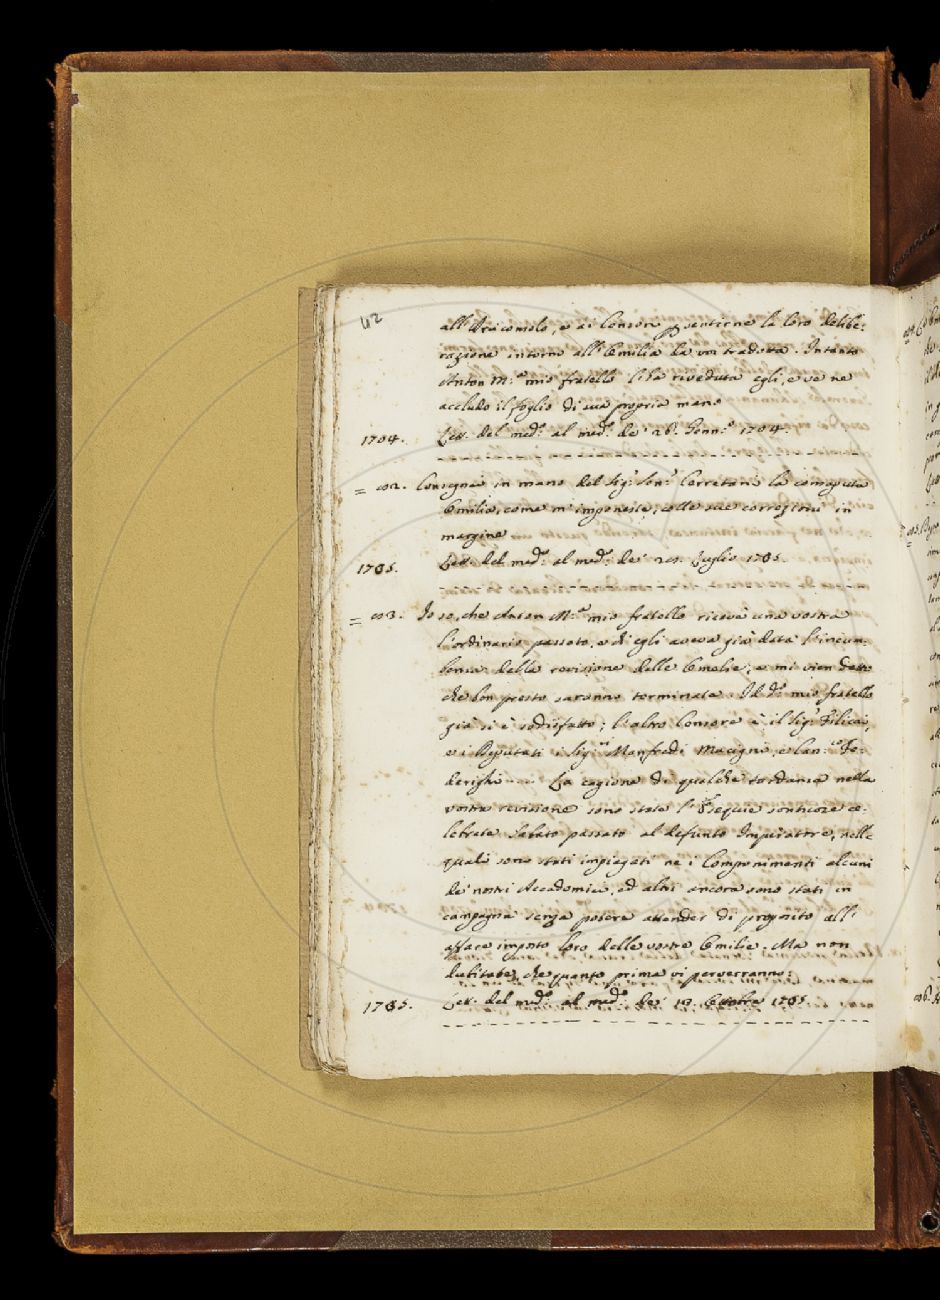 42
all'Arciconsolo, e ai Censori per sentirne la loro delibe:
razione intorno all'Omilia da voi tradotta. Intanto
Anton M.ª mio fratello l'ha riveduta egli, e ve ne
accludo il foglio di sua propria mano
1704. Lett. del med.º al med.º de' 26. Genn.º 1704.
= Consegnai in mano del Sig.r Sen.r Cerretani la compiuta
Omilia, come m'imponeste, colle sue correzioni in
margine
1705. Lett. del med.º al med.º de' 21. Luglio 1705.
= Io so, che Anton M.ª mio fratello ricevè una vostra
l'ordinario passato, e di egli aveva già data l'incum-
benza della revisione delle Omelie; e mi vien detto
che ben presto saranno terminate. Il d.º mio fratello
già si è sodisfatto; l'altro Censore è il Sig.r Filicai,
e i Deputati i Sig.ri Manfredi Macigni, e Can.co Fe-
derighi La cagione di qualche tardanza nella
vostra revisione sono state l'Esequie ce-
lebrate Sabato passato al defunto Imperatore, nelle
quali sono stati impiegati ne i Componimenti alcuni
de' nostri Accademici, ed altri ancora sono stati in
campagna senza potere attender di proposito all'
affare imposto loro delle vostre Omilie. Ma non
dubitate, che quanto prima vi perverranno:
1705. Lett. del med.º al med.º de' 13. Ottobre 1705.